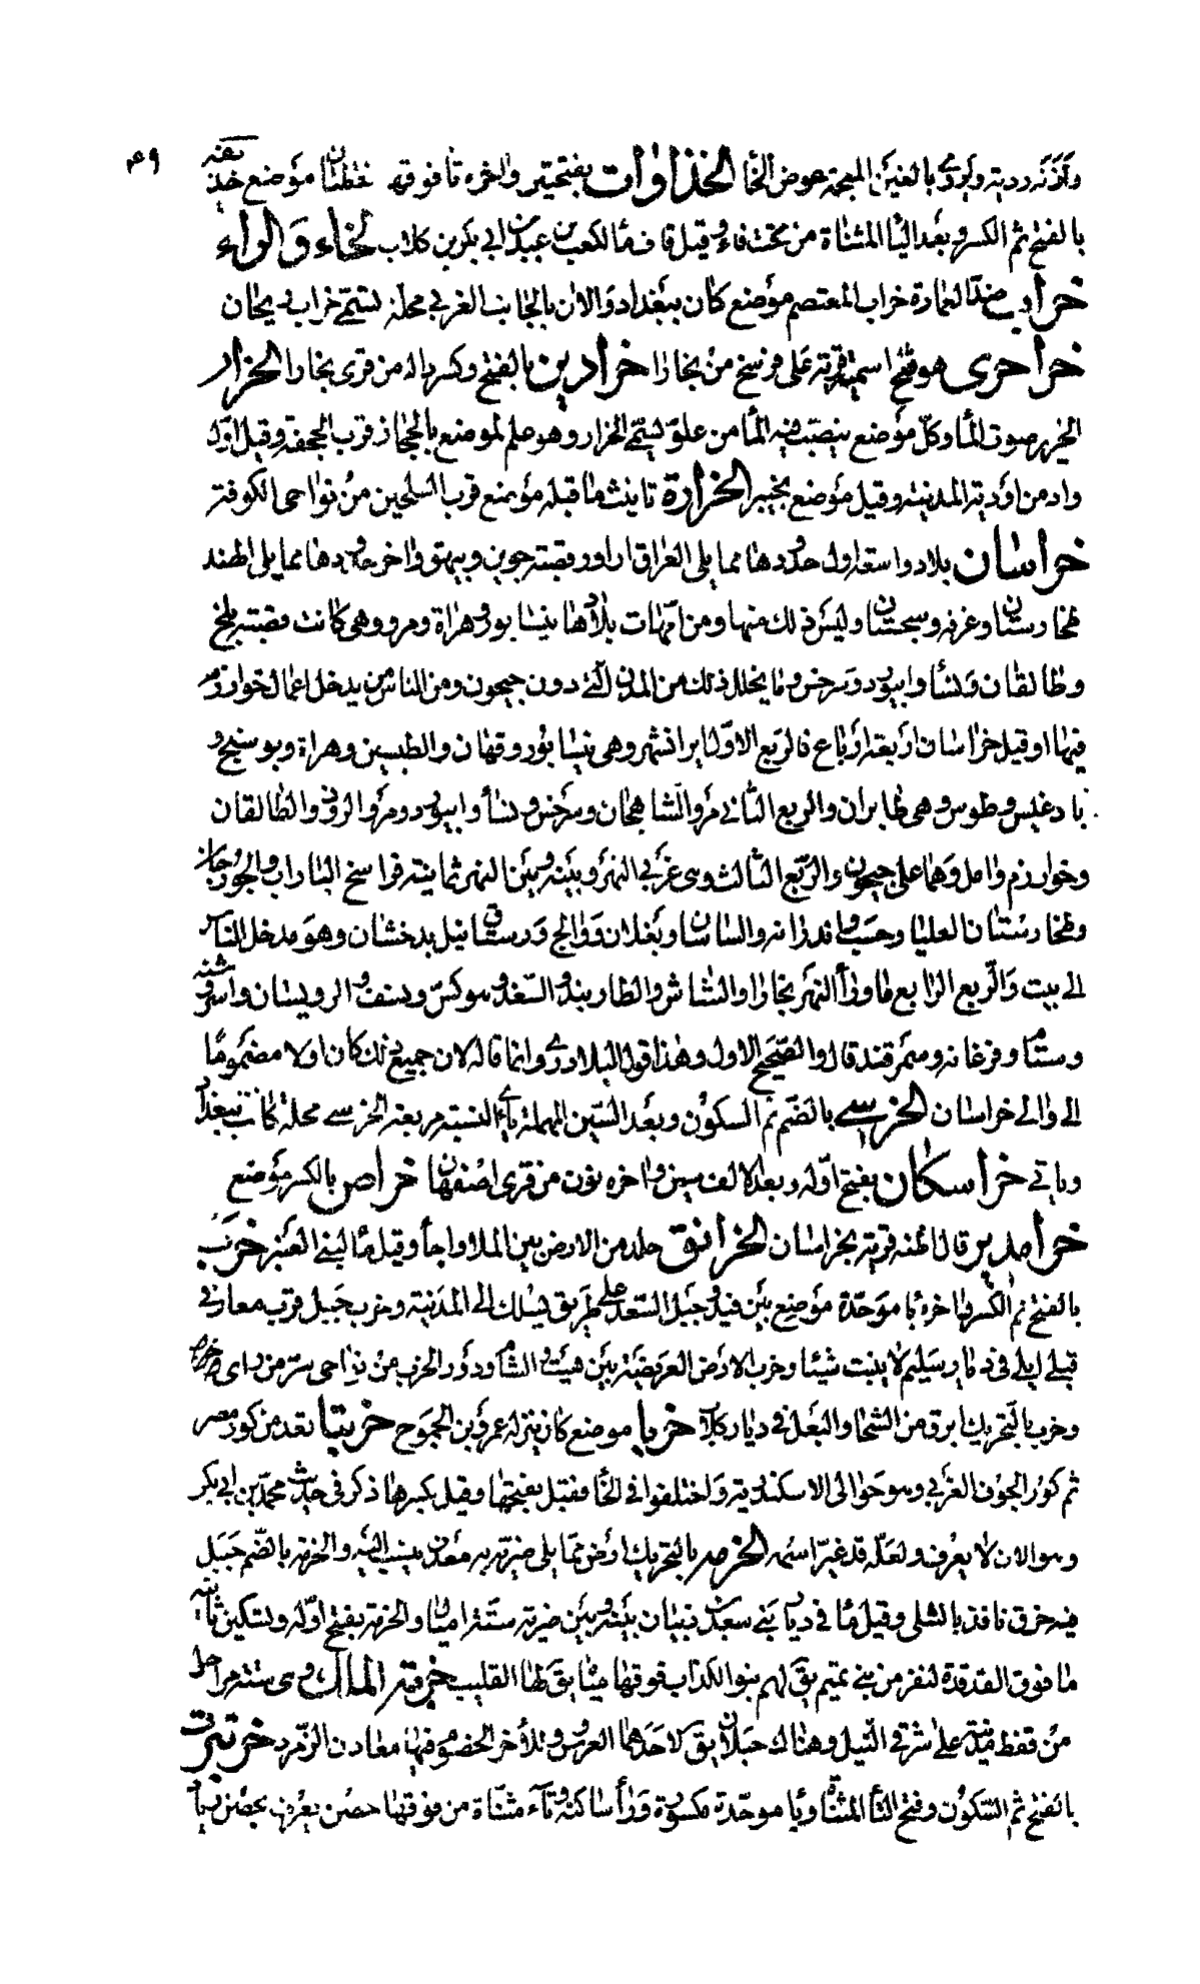 بالغين المعجمة عوض الخا الخذاوات بفتحتين واخره تا فوقها نقطتان موضع خذيقه ٤٩
بالفتح ثم الكسر وبعد اليا المثناة من تحت فاء وقيل قاف ماء لكعب بن عبد بن ابي بكر بن كلاب الخاء والراء
خراب ضد العمارة خراب المعتصم موضع كان ببغداد والان بالجانب الغربي محلة تسمى خراب
خراجرى اسم قرية على فرسخ من بخارا خرادين بالفتح وكسر دال من قرى بخارا الخرار
الخرير صوت الما وكل موضع ينصب فيه الما من علو يسمى الخرار وهو علم لموضع بالحجاز قرب الجحفة وقيل
واد من اودية المدينة وقيل موضع بخيبر الخرارة تانيث ما قبله موضع قرب السلحين من نواحى الكوفة
خراسان بلاد واسعة اول حدودها مما يلى العراق ازاوور قصبة جوين وبيهق واخر حدودها مما يلى الهند
طخارستان وغزنه وسجستان وليس ذلك منها ومن امهات بلادها نيسابور وهراة ومرو وهى كانت قصبة بلخ
وطالقان ونسا وابيورد وسرخس وما يخلل ذلك من المدن التى دون جيحون ومن الناس من يدخل اعمال خوارزم
فيها وقيل خراسان اربعة ارباع فالربع الاول ايرانشهر وهى نيسابور وقهستان والطبسين وهراة وبوسنج و
بادغيس وطوس وهى طابران والربع الثانى مرو الشاهجان وسرخس ونسا وابيورد ومرو الروذ والطالقان
وخوارزم وامل وهما على جيحون والربع الثالث وهى غربى النهر وبينه وبين النهر ثمانية فراسخ الفاراب والجوزجان
وطخارستان العليا وخست واندرابه والباميان وبغلان ووالج ورستاق نيل بدخشان وهو مدخل الناس
الى تبت والربع الرابع ما ورا النهر بخارا والشاش والطاربند والسغد وهو كس ونسف والروبستان واسروشنه
وسنام وفرغانه وسمرقند قال والصحيح الاول وهذا قول البلاذرى وانما قاله لان جميع ذلك كان اولا مضموما
الى والى خراسان الخرسى بالضم ثم السكون وبعد السين المهملة ياء النسبة مربعة الخرسى محلة كانت ببغداد
وياتى خراسكان بفتح اوله وبعد الالف سين واخره نون من قرى اصفهان خراص بالكسر موضع
قرية بخراسان الخرانق جلد من الارض بين الملا واجأ وقيل ما لبنى العنبر خرب
بالفتح ثم الكسر واخره با موحدة موضع بين فيد وجبل السعد على طريق يسلك الى المدينة وخرب جبل قرب معار فى
قبلى ابلى فى ديار سليم لا ينبت شيئا وخرب الارض العريضة بين هيت والشام ودور الخرب من نواحى سر من راى
وخرب بالتحريك ابرق من الشحا والثعل فى ديار كلاب خربا موضع كان ينزله عمرو بن الجموح خربتا تعد من كور مصر
ثم كور الحوف الغربى وهو حوالى الاسكندرية واختلفوا فى الخا فقيل بفتحها وقيل بكسرها ذكر فى حديث محمد بن ابى بكر
وهو الان لا يعرف ولعله قد غير اسمه الخرصر بالتحريك ارض مما يلى ضرية به معدن ينسب اليه والخربة بالضم جبل
فيه خرق نافذ بالشلى وقيل ما فى ديار بنى سعد بن ذبيان بينه وبين ضرية ستة اميال والخربة بفتح اوله وتسكين ثانيه
ما فوق الغدقدة لنفر من بنى تميم يق لهم بنو الكذاب فوقها ميا يق لها القليب خربة الملك وهى ستة مراحل
من قفط على شرقى النيل وهناك جبلان يق لاحدهما العروس وللاخر الخصوم فيها معادن الزمرد خرتبرت
بالفتح ثم السكون وفتح التا المثناة وبا موحدة مكسورة ورا ساكنة وتاء مثناة من فوقها حصن يعرف بحصن زياد